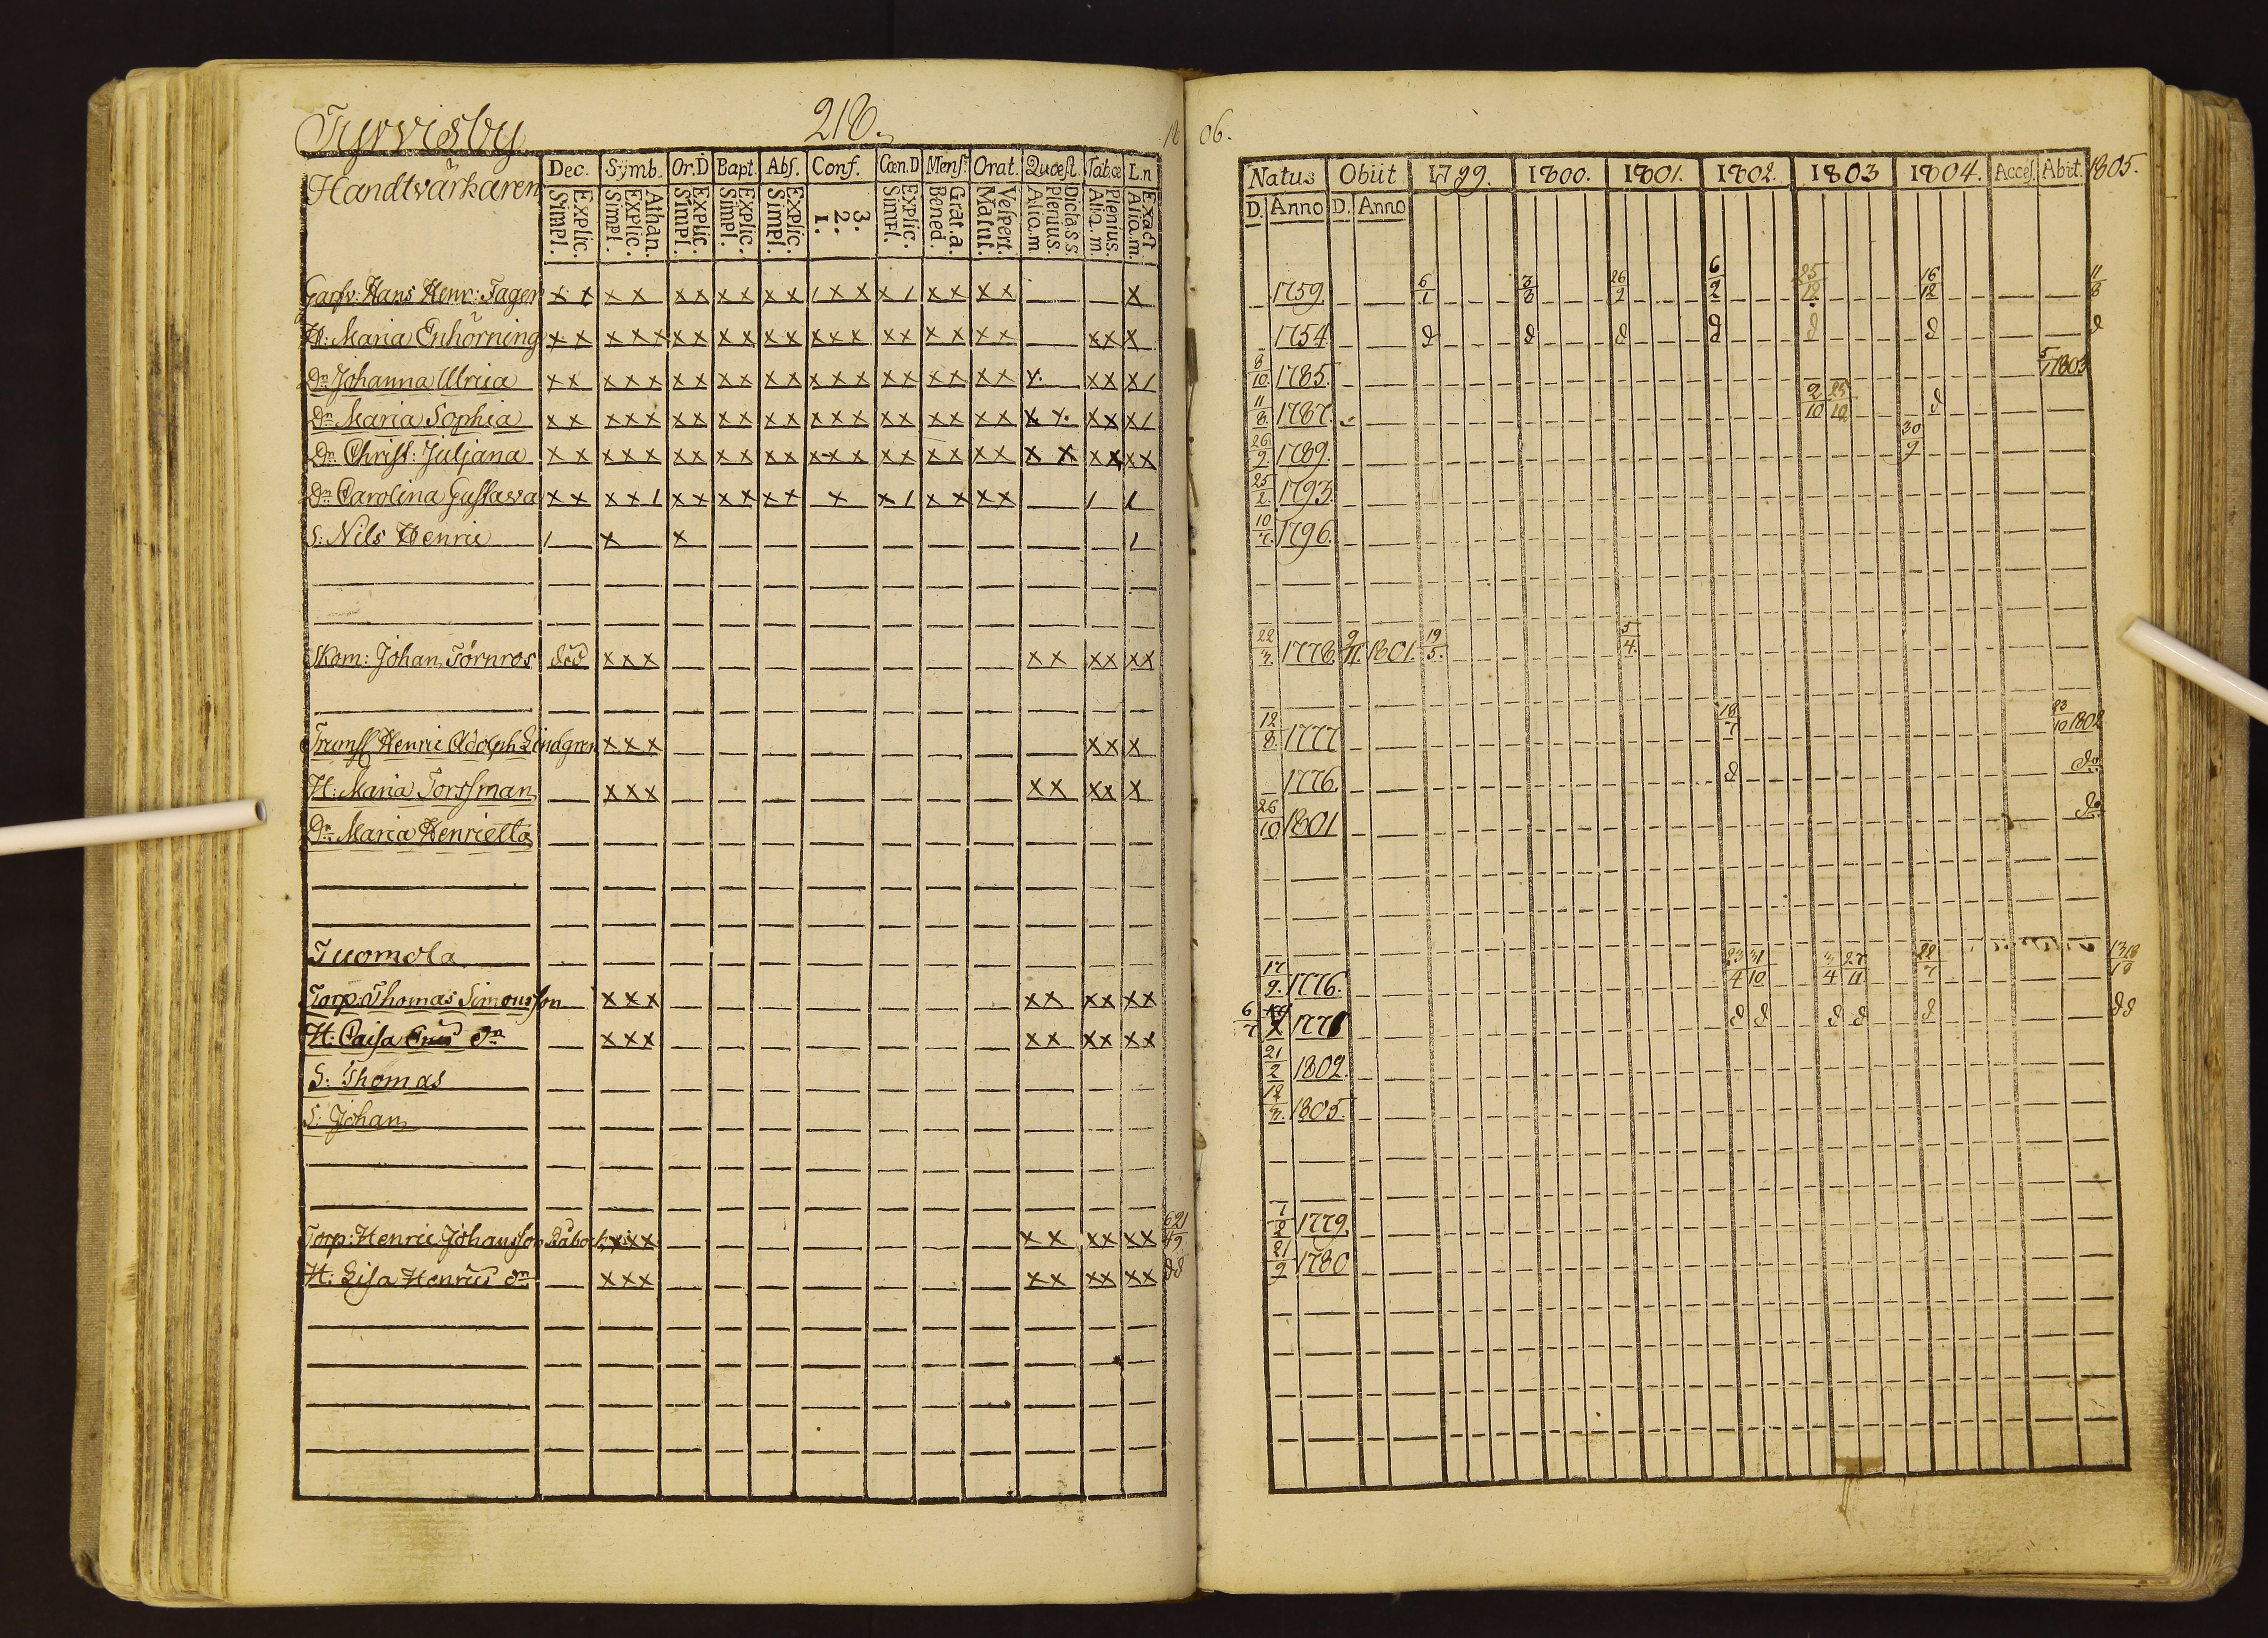 Tyrvisby
218.
18
06.
Handtvärkaren
Dec. Symb. Or.D Bapt. Abs. Conf. Cœn.D Mens. Orat. Quæst. Tab.œ L.n
Explic. Simpl. Athan. Explic. Simpl. Explic. Simpl. Explic. Simpl. Explic. Simpl. 3. 2. 1. Explic. Simpl. Grat.a. Bened. Vespert. Matut. Dicta.s.s. Plenius. Aliq.m. Plenius. Aliq.m. Exact Aliq.m.
Natus Obiit 1799. 1800. 1801. 1802. 1803 1804. Acces. Abiit. 1805.
D. Anno D. Anno
Garfv: Hans Henr: Fager x x x x x x x x x x 1 x x x 1 x x x x x 1759. 6/1 3/8 26/9 6/2 25/12 16/12 11/8
H: Maria Enhörning x x x x x x x x x x x x x x x x x x x x x x x 1754 d d d d d d d
Dr. Johanna Ulrica x x x x x x x x x x x x x x x x x x x x x x x 1 8/10 1785. 5/7 1803
Dr. Maria Sophia x x x x x x x x x x x x x x x x x x x x x x x x 1 11/8 1787. 2/10 25/10 d
Dr. Christ: Juljana x x x x x x x x x x x x x x x x x x x x x x x x x 26/9 1789. 30/9
Dr. Carolina Gustava x x x x 1 x x x x x x x x 1 x x x x 1 1 25/2 1793.
S: Nils Henric 1 x x 1 10/7 1796.
Skom: Johan Törnros död x x x x x x x x x 22/3 1778. 9/11 1801. 19/5 5/4
Henric Adolph Lindgren x x x x x x 12/8 1777 18/7 23/10 1802
H: Maria Forssman x x x x x x x x 1776. d do
Dr. Maria Henrietta 26/10 1801 do
Tuomola
Torp: Thomas Simonsson x x x x x x x x x 17/9 1776. 23/4 31/10 3/4 27/11 22/7
H: Caisa dr x x x x x x x x x 6/7 177 d d d d d dd
S: Thomas 21/2 1802.
S: Johan 12/3 1805.
Torp: Henric Johansson x x x x x x x x x 1/2 1779.
H: Lisa Henrics dr x x x x x x x x x dd 21/9 1780